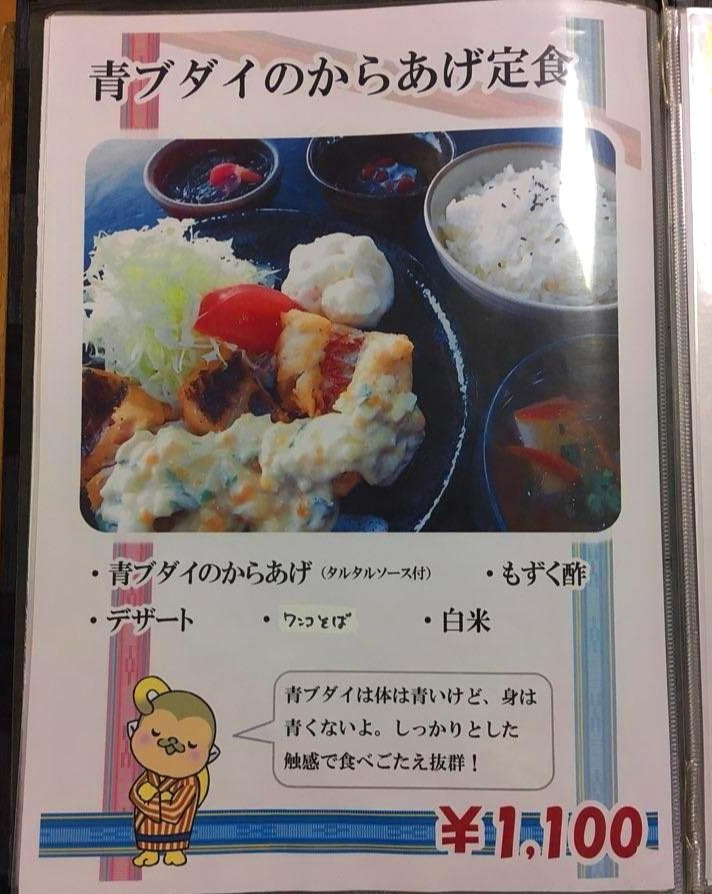 青ブダイのからあげ定食
・青ブダイのからあげ（タルタルソース付） ・もずく酢
・デザート ・ワンコそば ・白米
青ブダイは体は青いけど、身は
青くないよ。しっかりとした
触感で食べごたえ抜群！
¥1,100